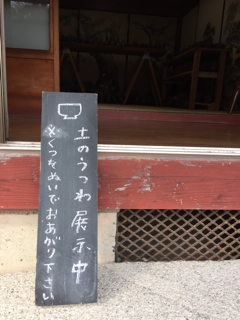 土のうつわ展示中
※くつをぬいでおあがり下さい